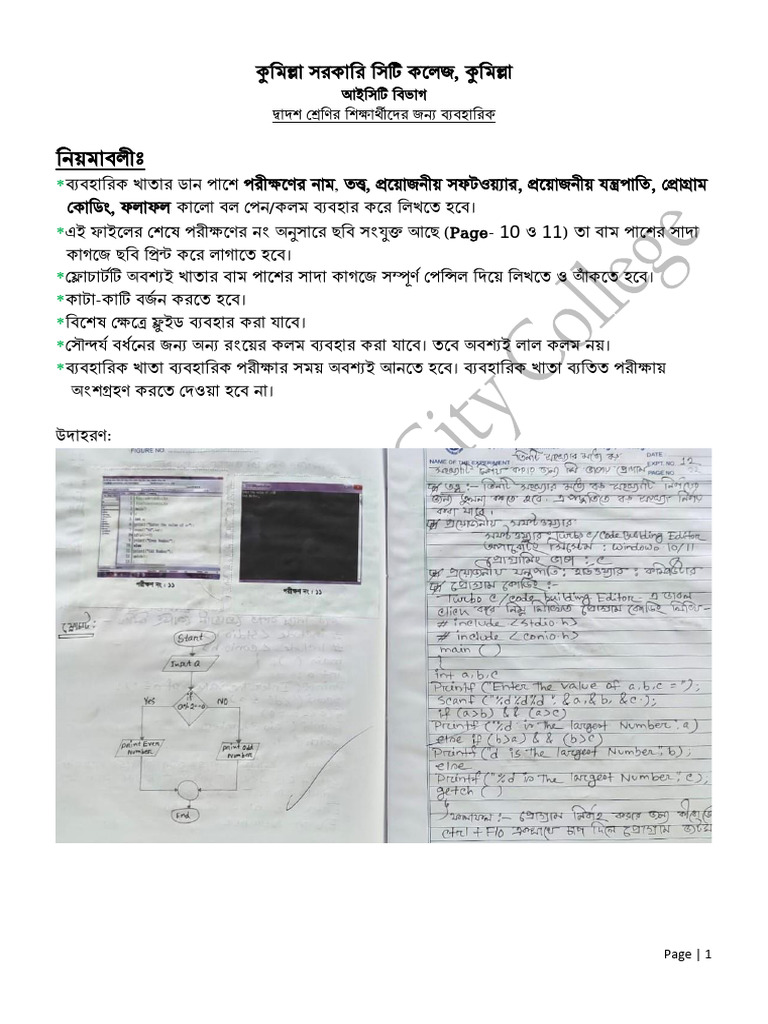 কুমিল্লা সরকারি সিটি কলেজ, কুমিল্লা
আইসিটি বিভাগ
দ্বাদশ শ্রেণির শিক্ষার্থীদের জন্য ব্যবহারিক
নিয়মাবলীঃ
*ব্যবহারিক খাতার ডান পাশে পরীক্ষণের নাম, তত্ত্ব, প্রয়োজনীয় সফটওয়্যার, প্রয়োজনীয় যন্ত্রপাতি, প্রোগ্রাম
কোডিং, ফলাফল কালো বল পেন/কলম ব্যবহার করে লিখতে হবে।
*এই ফাইলের শেষে পরীক্ষণের নং অনুসারে ছবি সংযুক্ত আছে (Page- 10 ও 11) তা বাম পাশের সাদা
কাগজে ছবি প্রিন্ট করে লাগাতে হবে।
*ফ্লোচার্টটি অবশ্যই খাতার বাম পাশের সাদা কাগজে সম্পূর্ণ পেন্সিল দিয়ে লিখতে ও আঁকতে হবে।
*কাটা-কাটি বর্জন করতে হবে।
*বিশেষ ক্ষেত্রে ফ্লুইড ব্যবহার করা যাবে।
*সৌন্দর্য বর্ধনের জন্য অন্য রংয়ের কলম ব্যবহার করা যাবে। তবে অবশ্যই লাল কলম নয়।
*ব্যবহারিক খাতা ব্যবহারিক পরীক্ষার সময় অবশ্যই আনতে হবে। ব্যবহারিক খাতা ব্যতিত পরীক্ষায়
অংশগ্রহণ করতে দেওয়া হবে না।
City College
উদাহরণ:
FIGURE NO
পরীক্ষণ নং : ১১
পরীক্ষণ নং : ১১
Start
Insert a
if
Yes
NO
Print Even
Number
Print Odd
Number
End
NAME OF THE EXPERIMENT
তিনটি সংখ্যার মধ্যে বড়
DATE
EXPT. NO. 12
PAGE NO
প্রয়োজনীয় সফটওয়্যার
সফটওয়্যার : Turbo c/Code Building Editor
অপারেটিং সিস্টেম : Windows 10/11
প্রোগ্রামিং ভাষা : C
প্রয়োজনীয় যন্ত্রপাতি : হার্ডওয়্যার : কম্পিউটার
প্রোগ্রাম কোডিং :-
Turbo c/code building Editor- এ ডাবল
click করে নিম্ন লিখিত প্রোগ্রাম কোডিং লিখি-
# include <stdio.h>
# include <conio.h>
main ( )
{
int a,b,c
Printf ("Enter the value of a,b,c =");
Scanf ("%d%d%d", &a,&b, &c);
if (a>b) && (a>c)
Printf ("%d is the largest Number", a)
else if (b>a) && (b>c)
Printf ("d is the largest Number", b);
else
Printf ("%d is the largest Number", c);
getch ( )
}
ফলাফল :- প্রোগ্রাম নির্বাহ করার জন্য কীবোর্ডে
ctrl + F10 একসাথে চাপ দিলে প্রোগ্রাম
Page | 1